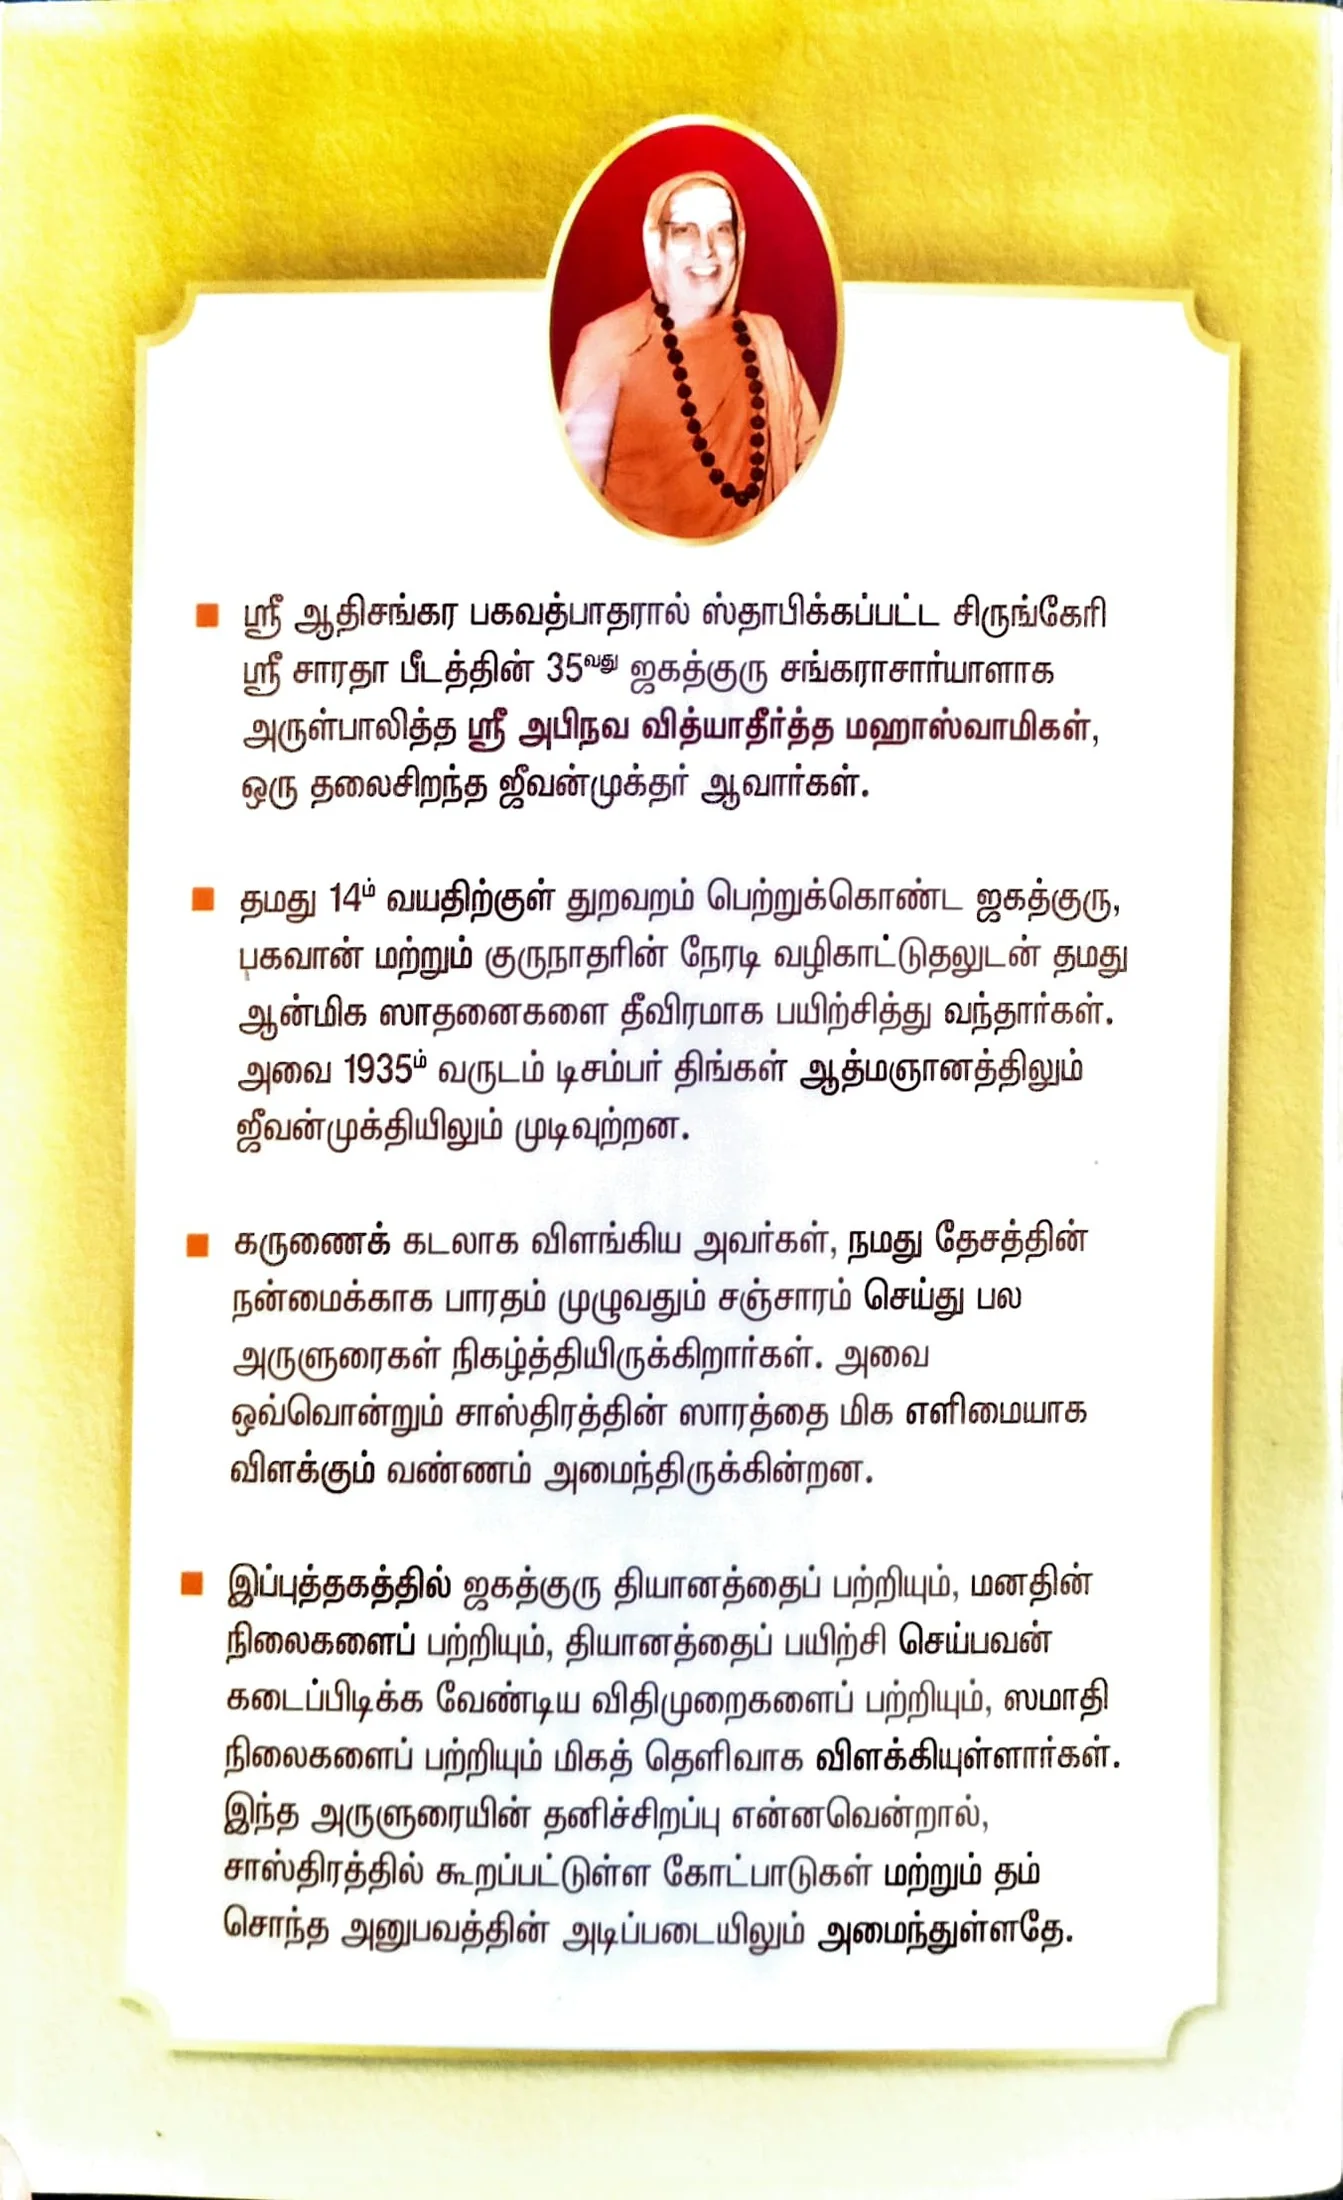 ■ ஸ்ரீ ஆதிசங்கர பகவத்பாதரால் ஸ்தாபிக்கப்பட்ட சிருங்கேரி
ஸ்ரீ சாரதா பீடத்தின் 35வது ஜகத்குரு சங்கராசார்யாளாக
அருள்பாலித்த ஸ்ரீ அபிநவ வித்யாதீர்த்த மஹாஸ்வாமிகள்,
ஒரு தலைசிறந்த ஜீவன்முக்தர் ஆவார்கள்.
■ தமது 14ம் வயதிற்குள் துறவறம் பெற்றுக்கொண்ட ஜகத்குரு,
பகவான் மற்றும் குருநாதரின் நேரடி வழிகாட்டுதலுடன் தமது
ஆன்மிக ஸாதனைகளை தீவிரமாக பயிற்சித்து வந்தார்கள்.
அவை 1935ம் வருடம் டிசம்பர் திங்கள் ஆத்மஞானத்திலும்
ஜீவன்முக்தியிலும் முடிவுற்றன.
■ கருணைக் கடலாக விளங்கிய அவர்கள், நமது தேசத்தின்
நன்மைக்காக பாரதம் முழுவதும் சஞ்சாரம் செய்து பல
அருளுரைகள் நிகழ்த்தியிருக்கிறார்கள். அவை
ஒவ்வொன்றும் சாஸ்திரத்தின் ஸாரத்தை மிக எளிமையாக
விளக்கும் வண்ணம் அமைந்திருக்கின்றன.
■ இப்புத்தகத்தில் ஜகத்குரு தியானத்தைப் பற்றியும், மனதின்
நிலைகளைப் பற்றியும், தியானத்தைப் பயிற்சி செய்பவன்
கடைப்பிடிக்க வேண்டிய விதிமுறைகளைப் பற்றியும், ஸமாதி
நிலைகளைப் பற்றியும் மிகத் தெளிவாக விளக்கியுள்ளார்கள்.
இந்த அருளுரையின் தனிச்சிறப்பு என்னவென்றால்,
சாஸ்திரத்தில் கூறப்பட்டுள்ள கோட்பாடுகள் மற்றும் தம்
சொந்த அனுபவத்தின் அடிப்படையிலும் அமைந்துள்ளதே.